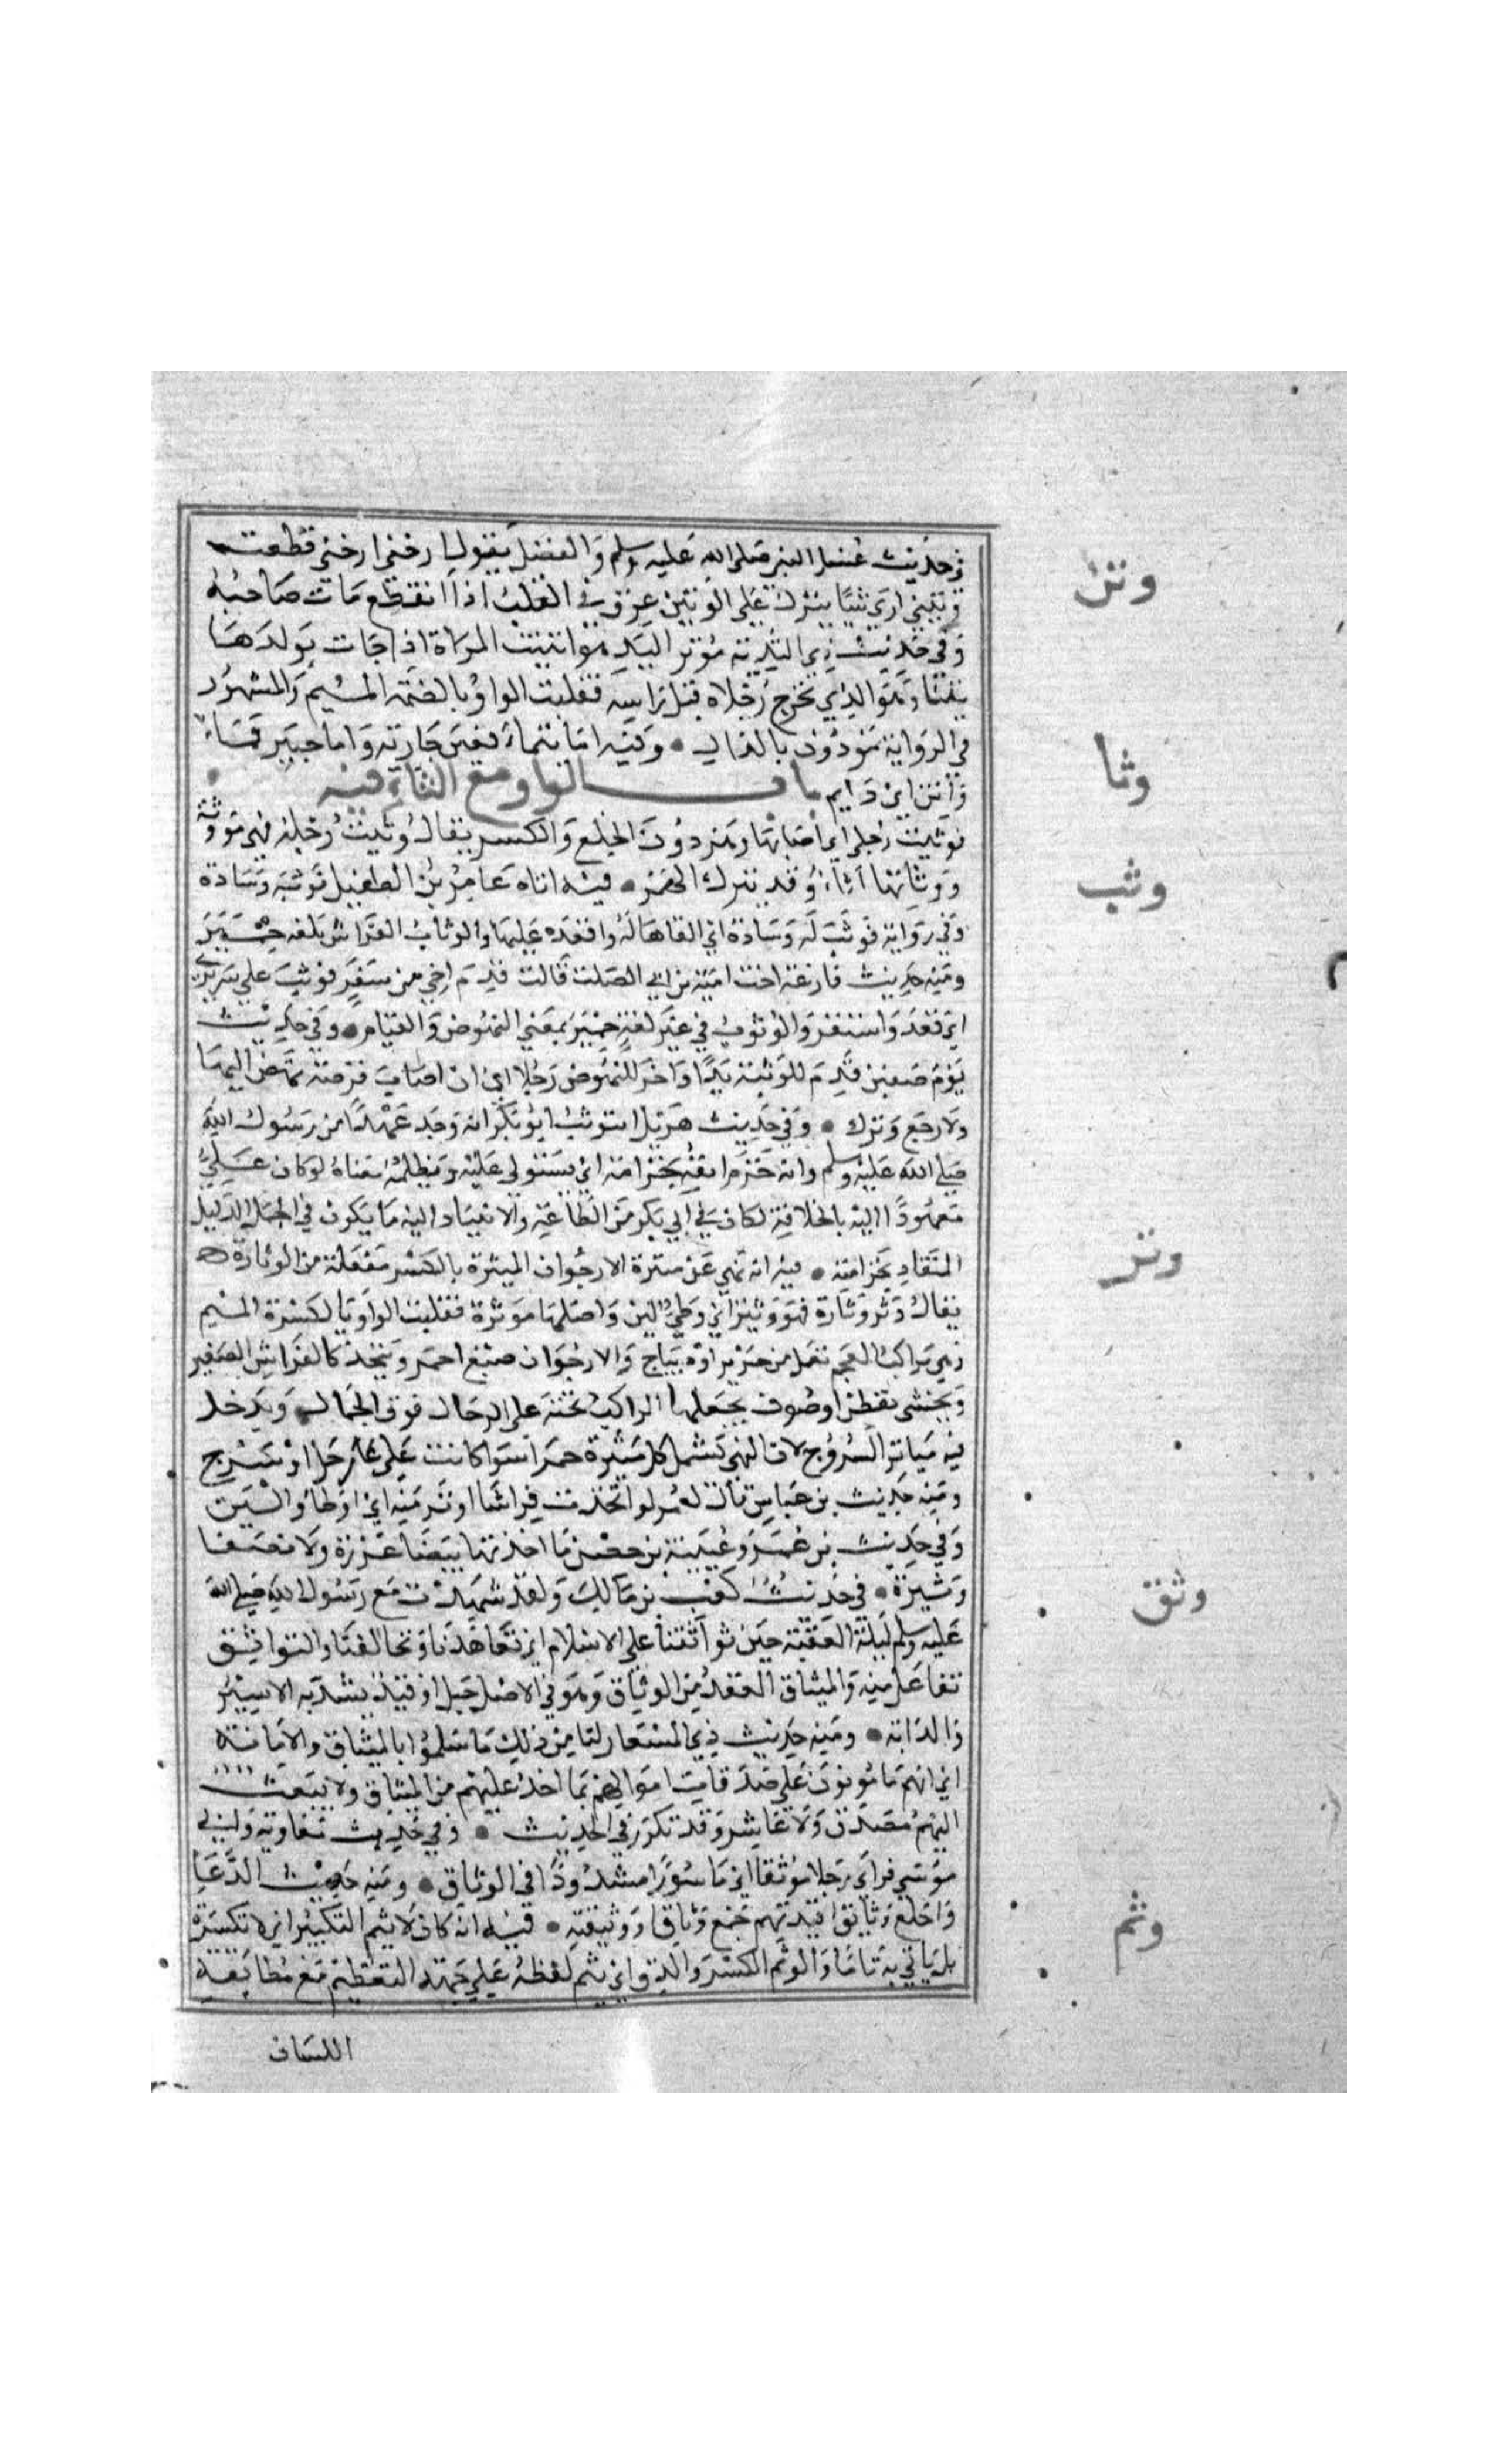 في حديث غسل النبي صلى الله عليه وسلم والفضل يقول ارحني ارحني قطعت
وتن
وتيني ارى شيئا ينزل على الوتين عرق في القلب اذا انقطع مات صاحبه
وفي حديث ذي الثدية موتن اليد هو ايتنت المراة اذا جات بولدها
يتنا وهو الذي تخرج رجلاه قبل راسه فقلبت الواو بالضمة الميم والمشهور
في الرواية مودون بالدال • وفيه اما تيماء فعين جارية واما خيبر فماء
وثا
واتن اي دايم باب الواو مع الثاء فيه
فوثيت رجلي اي اصابها وهن دون الخلع والكسر يقال وثيت رجله فهي موثوة
ووثاتها انا وقد يترك الهمز • فيه اتاه عامر بن الطفيل فوثبه وسادة
وثب
وفي رواية فوثب له وسادة اي القاها له واقعده عليها والوثاب الفراش بلغة حمير
ومنه حديث فارعة اخت امية بن ابي الصلت قالت قدم اخي من سفر فوثب على سريري
اي قعد واستقر والوثوب في غير لغة حمير بمعنى النهوض والقيام • وفي حديث
يوم صفين قدم للوثبة يدا واخر للنهوض رجلا اي ان اصاب فرصة نهض اليها
ولا رجع وترك • وفي حديث هزيل اتوثب ابو بكر انه وجد عهدا من رسول الله
صلى الله عليه وسلم وانه خزم انفه بخزامة اي يستولي عليه ويظلمه معناه لو كان علي
معهودا اليه بالخلافة لكان في ابي بكر من الطاعة والانقياد اليه ما يكون في الجمل الذليل
وثر
المنقاد بخزامته • فيه انه نهى عن ميثرة الارجوان الميثرة بالكسر مفعلة من الوثارة
يقال وثر وثارة فهو وثير اي وطي لين واصلها موثرة فقلبت الواو يا لكسرة الميم
وهي مراكب العجم تعمل من حرير او ديباج والارجوان صبغ احمر ويتخذ كالفراش الصغير
ويحشى بقطن او صوف يجعلها الراكب تحته على الرحال فوق الجمال ويدخل
فيه مياثر السروج لان النهي تشمل كل ميثرة حمرا سوا كانت على رحل او سرج
ومنه حديث بن عباس قال لعمر لو اتخذت فراشا اوثر منه اي اوطا والين
وفي حديث بن عمر وعيينة بن حصن ما اخذتها بيضا غزيرة ولا نصفا
وثيرة • في حديث كعب بن مالك ولقد شهدت مع رسول الله صلى الله
وثق
عليه وسلم ليلة العقبة حين تواثقنا على الاسلام اي تعاهدنا وتحالفنا والتواثق
تفاعل منه والميثاق العقد من الوثاق وهو في الاصل حبل او قيد يشد به الاسير
والدابة • ومنه حديث ذي المشعار لنا من ذلك ما سلموا بالميثاق والامانة
اي انهم مامونون على صدقات اموالهم بما اخذ عليهم من الميثاق ولا يبعث
اليهم مصدق ولا عاشر وقد تكرر في الحديث • وفي حديث معاوية وابي
موسى فراى رجلا موثقا اي ماسورا مشدودا في الوثاق • ومنه حديث الدعا
واخلع وثايق افيدتهم جمع وثاق او وثيقة • فيه انه كان لا يثم التكبير اي لا تكسره
وثم
بل ياتي به تاما والوثم الكسر والدق اي يثم لفظه على جهة التعظيم مع مطابقة
اللسان